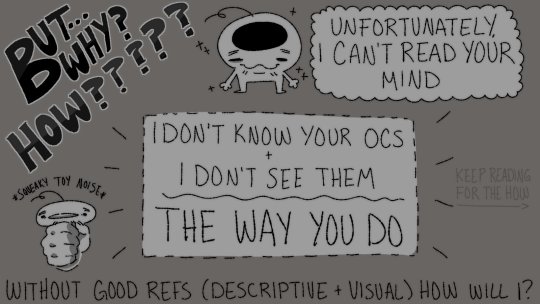 BUT...
WHY?
HOW?????
UNFORTUNATELY,
I CAN'T READ YOUR
MIND
I DON'T KNOW YOUR OCS
+
I DON'T SEE THEM
THE WAY YOU DO
*SQUEAKY TOY NOISE*
KEEP READING
FOR THE HOW
WITHOUT GOOD REFS (DESCRIPTIVE + VISUAL) HOW WILL I?